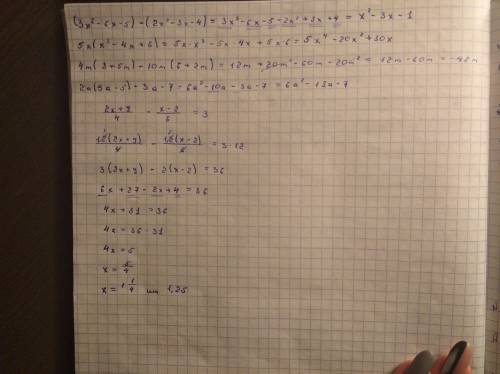 (3x² - 6x - 5) - (2x² - 3x - 4) = 3x² - 6x - 5 - 2x² + 3x + 4 = x² - 3x - 1
5x(x³ - 4x + 6) = 5x · x³ - 5x · 4x + 5x · 6 = 5x⁴ - 20x² + 30x
4m(3 + 5m) - 10m(6 + 2m) = 12m + 20m² - 60m - 20m² = 12m - 60m = -48m
2a(3a - 5) - 3a - 7 = 6a² - 10a - 3a - 7 = 6a² - 13a - 7
(2x + 9)/4 - (x - 2)/6 = 3
12(2x + 9)/4 - 12(x - 2)/6 = 3 · 12
3(2x + 9) - 2(x - 2) = 36
6x + 27 - 2x + 4 = 36
4x + 31 = 36
4x = 36 - 31
4x = 5
x = 5/4
x = 1 1/4 или 1,25